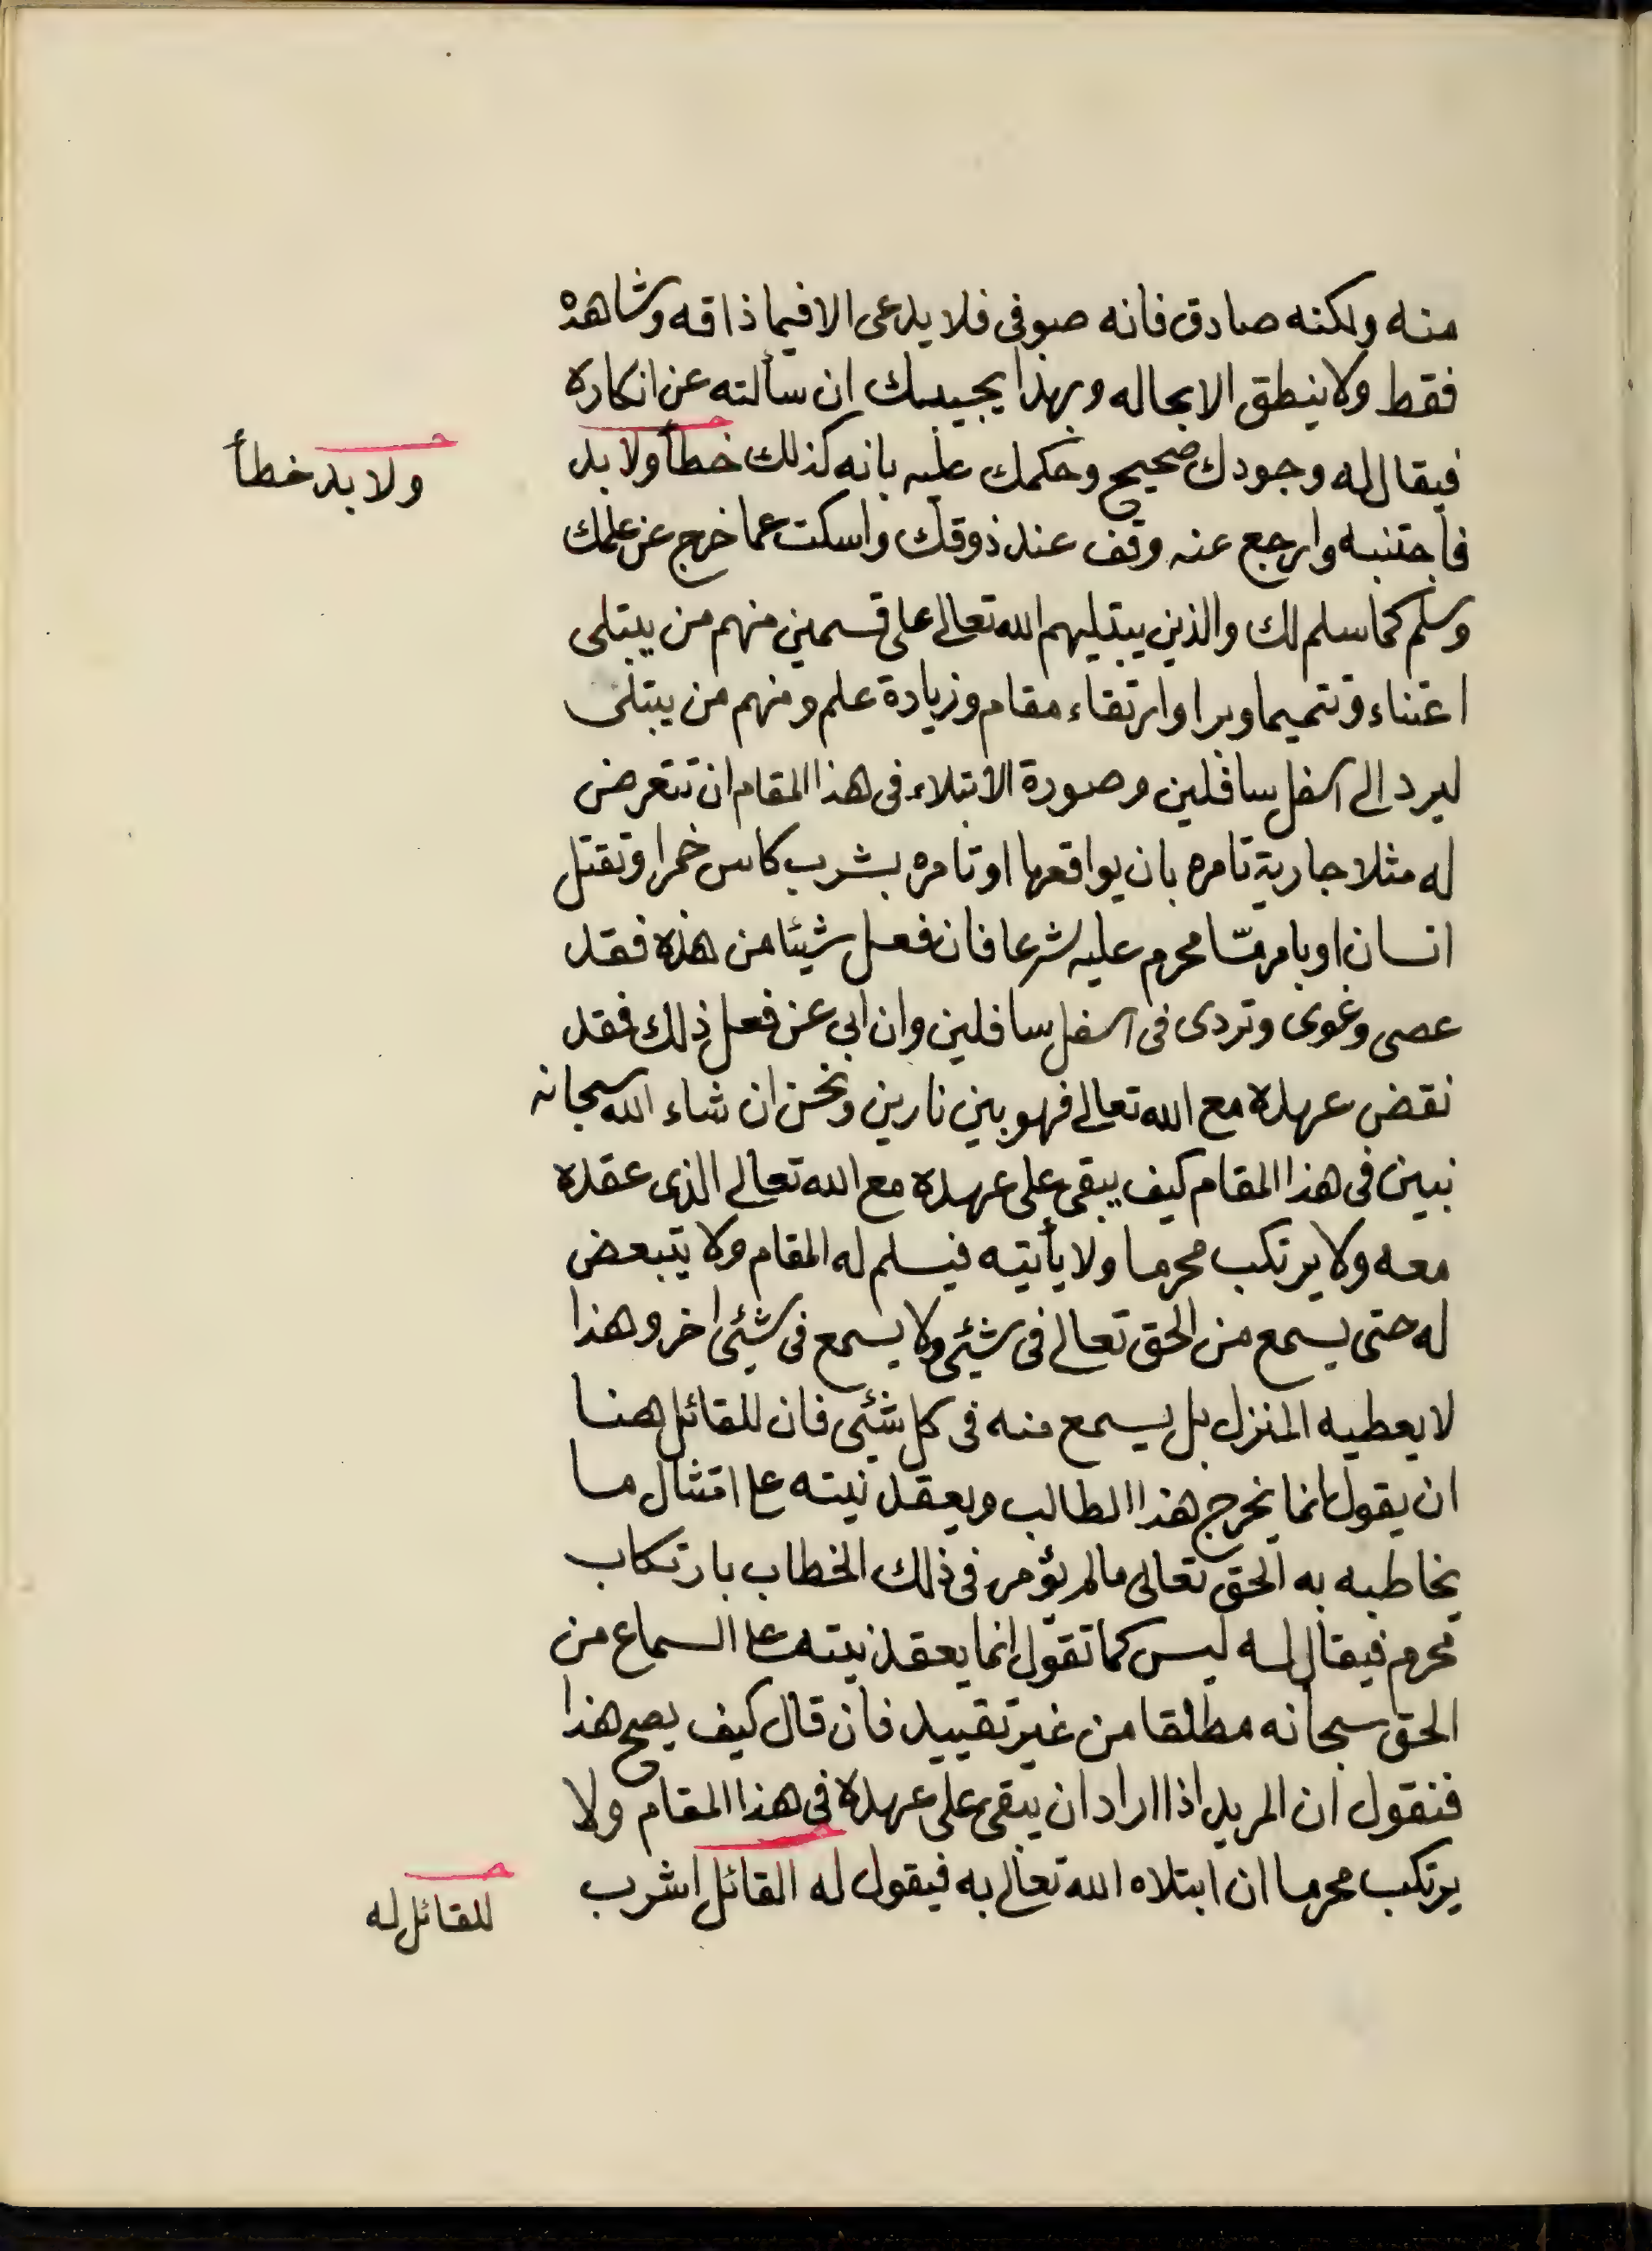 منه ولكنه صادق فانه صوفى فلا يدعى الا فيما ذاقه وشاهده
فقط ولا ينطق الا بحاله وبهذا يجيبك ان سألته عن انكاره
فيقال له وجودك صحيح وحكمك عليه بانه كذلك خطأ ولا بد
ولا بد خطأ
فاجتنبه وارجع عنه وقف عند ذوقك واسكت عما خرج عن علمك
وسلم كما سلم لك والذين يبتليهم الله تعالى على قسمين منهم من يبتلى
اعتناء وتتميما وبرا وارتقاء مقام وزيادة علم ومنهم من يبتلى
ليرد الى اسفل سافلين وصورة الابتلاء فى هذا المقام ان تتعرض
له مثلا جارية تامره بان يواقعها او تامره بشرب كاس خمر او تقتل
انسان او بامر مّا محرم عليه شرعا فان فعل شيئا من هذه فقد
عصى وغوى وتردى فى اسفل سافلين وان ابى عن فعل ذلك فقد
نقض عهده مع الله تعالى فهو بين نارين ونحن ان شاء الله سبحانه
نبين فى هذا المقام كيف يبقى على عهده مع الله تعالى الذى عقده
معه ولا يرتكب محرما ولا يأتيه فيسلم له المقام ولا يتبعض
له حتى يسمع من الحق تعالى فى شئى ولا يسمع فى شئى اخر وهذا
لا يعطيه المنزل بل يسمع منه فى كل شئى فان للقائل هنا
ان يقول انما يخرج هذا الطالب ويعقد نيته على امتثال ما
يخاطبه به الحق تعالى مالم يؤمر فى ذلك الخطاب بارتكاب
محرم فيقال له ليس كما تقول انما يعقد نيته على السماع من
الحق سبحانه مطلقا من غير تقييد فان قال كيف يصح هذا
فنقول ان المريد اذا اراد ان يبقى على عهده فى هذا المقام ولا
يرتكب محرما ان ابتلاه الله تعالى به فيقول له القائل اشرب
للقائل له